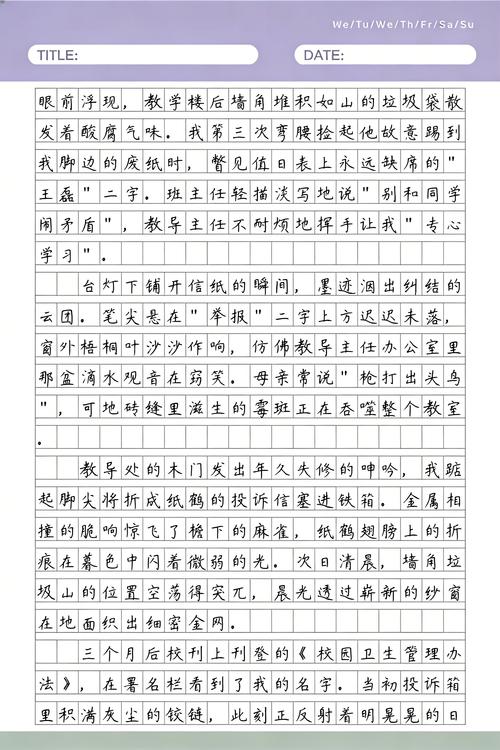 We/Tu/We/Th/Fr/Sa/Su
TITLE:
DATE:
眼前浮现，教学楼后墙角堆积如山的垃圾袋散
发着酸腐气味。我第三次弯腰捡起他故意踢到
我脚边的废纸时，瞥见值日表上永远缺席的"
王磊"二字。班主任轻描淡写地说"别和同学
闹矛盾"，教导主任不耐烦地挥手让我"专心
学习"。
台灯下铺开信纸的瞬间，墨迹洇出纠结的
云团。笔尖悬在"举报"二字上方迟迟未落，
窗外梧桐叶沙沙作响，仿佛教导主任办公室里
那盆滴水观音在窃笑。母亲常说"枪打出头鸟
"，可地砖缝里滋生的霉斑正在吞噬整个教室
。
教导处的木门发出年久失修的呻吟，我踮
起脚尖将折成纸鹤的投诉信塞进铁箱。金属相
撞的脆响惊飞了檐下的麻雀，纸鹤翅膀上的折
痕在暮色中闪着微弱的光。次日清晨，墙角垃
圾山的位置空荡得突兀，晨光透过崭新的纱窗
在地面织出细密金网。
三个月后校刊上刊登的《校园卫生管理办
法》，在署名栏看到了我的名字。当初投诉箱
里积满灰尘的铰链，此刻正反射着明晃晃的日